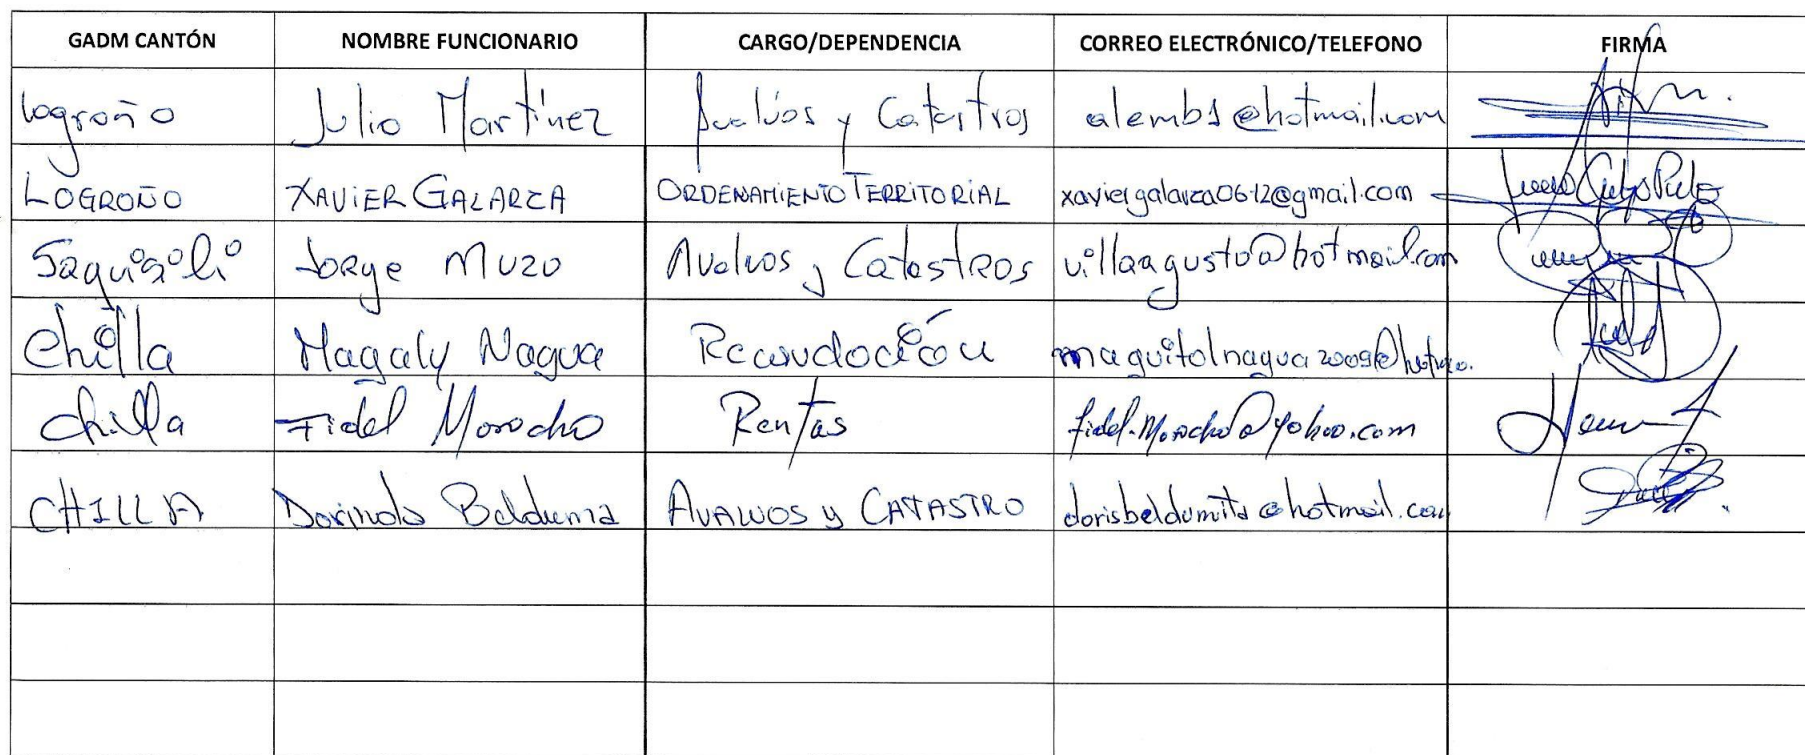 GADM CANTÓN NOMBRE FUNCIONARIO CARGO/DEPENDENCIA CORREO ELECTRÓNICO/TELEFONO FIRMA
logroño Julio Martínez Avalúos y Catastros alemb1@hotmail.com
LOGROÑO XAVIER GALARZA ORDENAMIENTO TERRITORIAL xaviergalarza0612@gmail.com
Saquisilí Jorge Muzo Avaluos y Catastros villaagusto@hotmail.com
Chilla Magaly Nagua Recaudación
Chilla Fidel Morocho Rentas fidel.morocho@yahoo.com
CHILLA Balduma AVALUOS y CATASTRO dorisbeldumita@hotmail.com